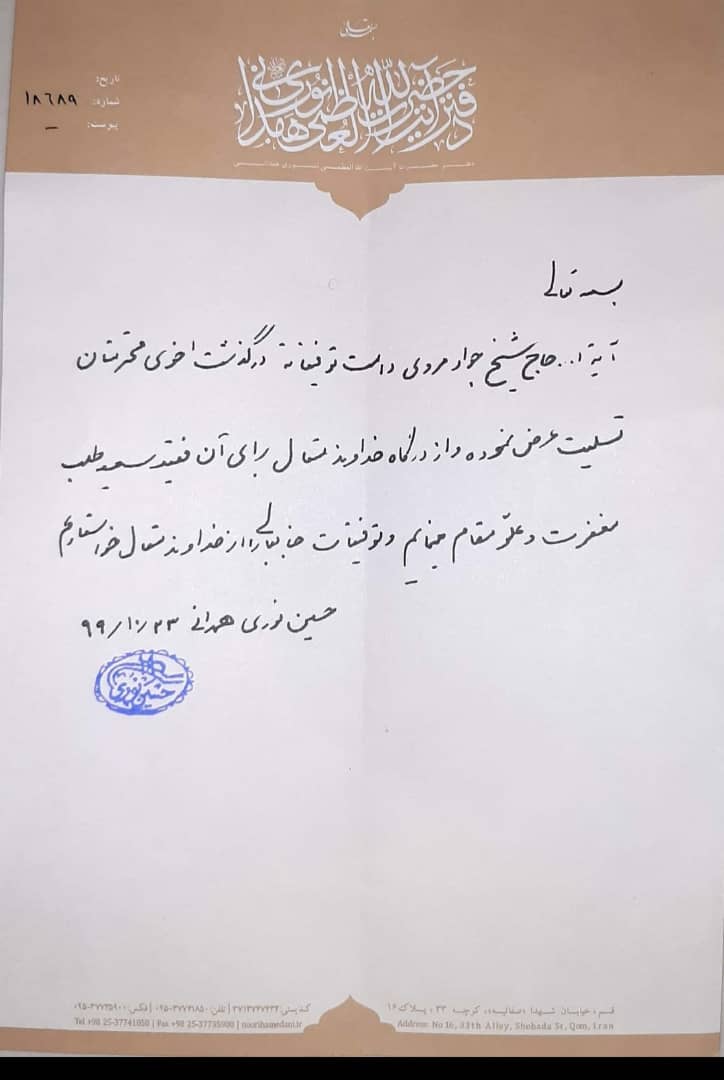 بسمه تعالی
دفتر حضرت آیت الله العظمی نوری همدانی
دفتر حضرت آیت الله العظمی نوری همدانی
تاریخ:
شماره: ۱۸۶۸۹
پیوست: –
بسمه تعالی
آیة ا... حاج شیخ جواد مروی دامت توفیقاته درگذشت اخوی محترمتان
تسلیت عرض نموده و از درگاه خداوند متعال برای آن فقید سعید طلب
مغفرت و علوّ مقام مینمایم و توفیقات جنابعالی را از خداوند متعال خواستارم
حسین نوری همدانی ۹۹/۱۰/۲۳
حسین نوری
قم، خیابان شهدا «صفائیه»، کوچه ۳۳، پلاک ۱۶
کدپستی: ۳۷۱۳۷۴۷۴۳۴ | تلفن: ۰۲۵-۳۷۷۴۱۸۵۰ | فکس: ۰۲۵-۳۷۷۳۵۹۰۰
Address: No 16, 33th Alley, Shohada St, Qom, Iran
Tel +98 25-37741850 | Fax +98 25-37735900 | noorihamedani.ir